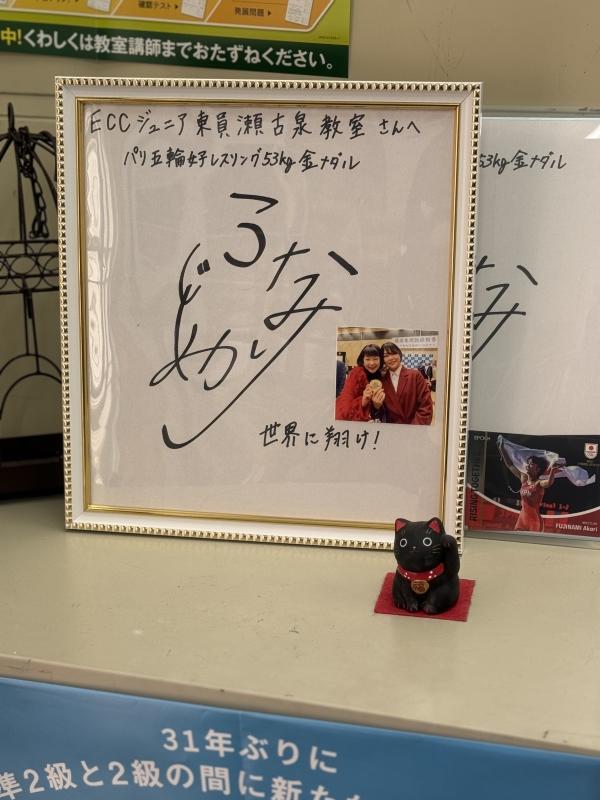 確認テスト▶
発展問題▶
中!くわしくは教室講師までおたずねください。
ECCジュニア東員瀬古泉教室さんへ
パリ五輪女子レスリング53kg金メダル
ふじなみ
あかり
世界に翔け!
53kg金メダル
なみ
EPOCH
RISING TOGETHER
FUJINAMI Akari
31年ぶりに
準2級と2級の間に新た